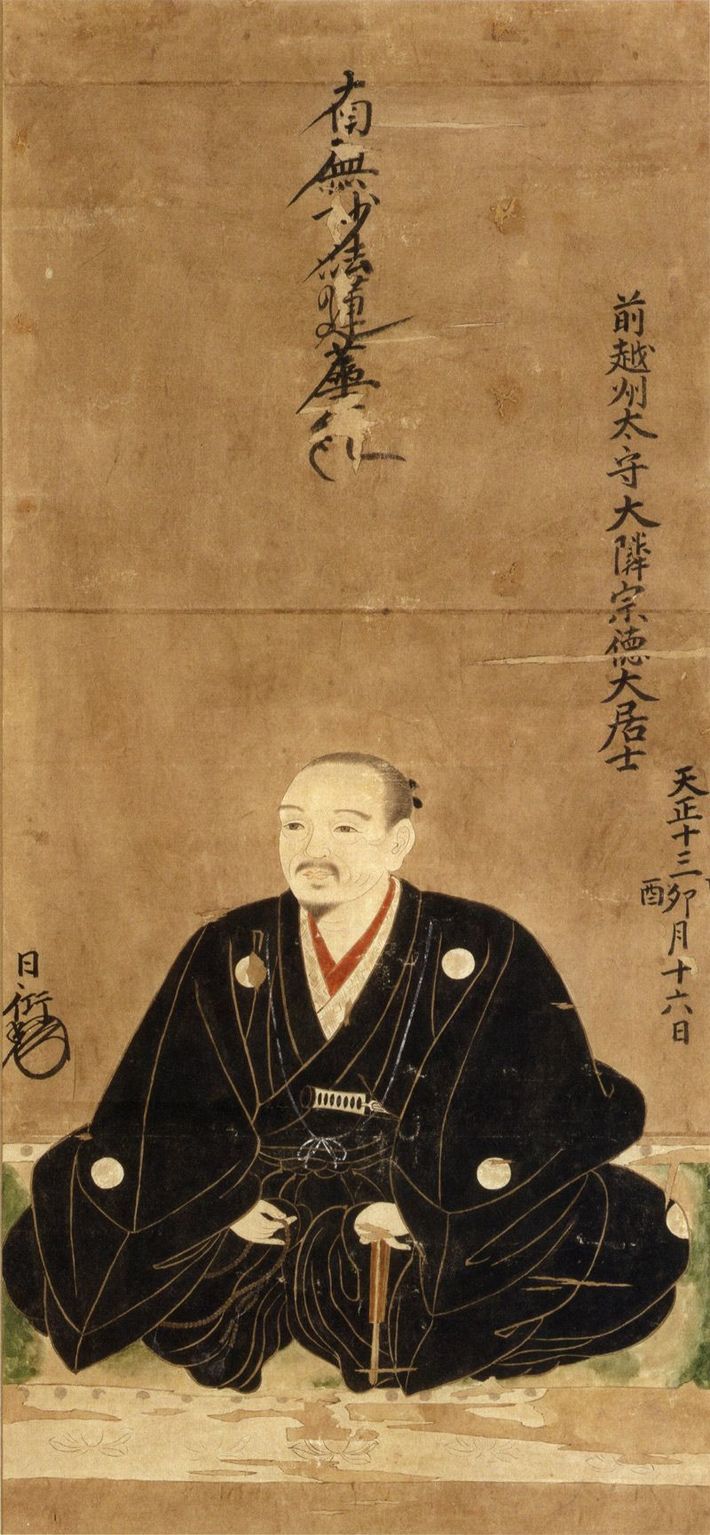 天正十三酉卯月十六日
前越州太守大隣宗徳大居士
南無妙法蓮華経
日衍